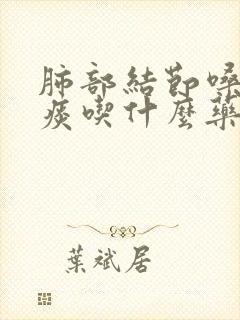 肺部結節嗓
痰喫什麼藥
葉斌居